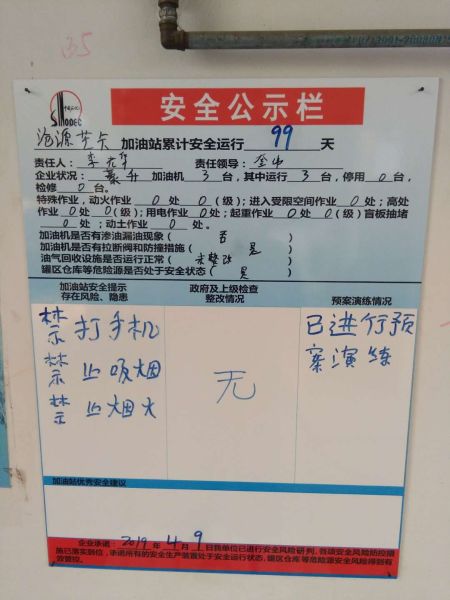 35
SINODEC
安全公示栏
沧源芒卡 加油站累计安全运行 99 天
责任人： 责任领导：
企业状况： 加油机 3 台，其中运行 3 台，停用 0 台，
检修 0 台。
特殊作业，动火作业 0 处 0 （级）；进入受限空间作业 0 处；高处
作业 0 处 0 （级）；用电作业 0 处；起重作业 0 处 0 （级）盲板抽堵
0 处；动土作业 0 处。
加油机是否有渗油漏油现象（ 否 ）
加油机是否有拉断阀和防撞措施（ 是 ）
油气回收设施是否运行正常（ 未整改 ）
罐区仓库等危险源是否处于安全状态（ 是 ）
加油站安全提示
存在风险、隐患
政府及上级检查
整改情况
预案演练情况
禁打手机
禁止吸烟
禁止烟火
无
已进行预
案演练
加油站优秀安全建议
企业承诺：2019 年 4 月 9 日我单位已进行安全风险研判，各项安全风险防控措
施已落实到位，承诺所有的安全生产装置处于安全运行状态，罐区仓库等危险源安全风险得到有
效管控。